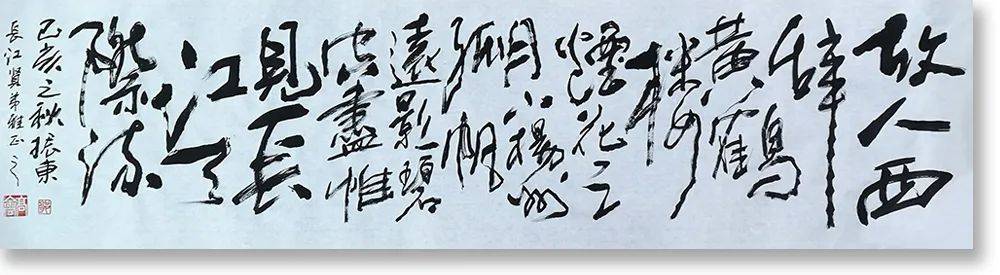 故人西
辭
黃鶴
樓
煙花三
月下揚州
孤帆
遠影碧
空盡惟
見長
江天
際流
己亥之秋振東
長江賢弟雅正之